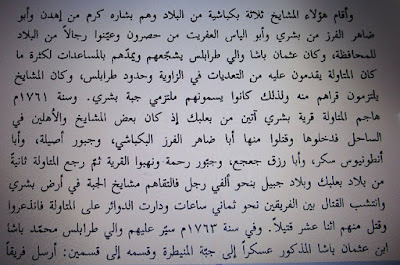 وأقام هؤلاء المشايخ ثلاثة بكباشية من البلاد وهم بشاره كرم من إهدن وأبو
ضاهر الفرز من بشري وأبو الياس العفريت من حصرون وعيّنوا رجالاً من البلاد
للمحافظة، وكان عثمان باشا والي طرابلس يشجّعهم ويمدّهم بالمساعدات لكثرة ما
كان المتاولة يقدمون عليه من التعديات في الزاوية وحدود طرابلس، وكان المشايخ
يلتزمون قراهم منه ولذلك كانوا يسمونهم ملتزمي جبة بشري. وسنة ١٧٦١م
هاجم المتاولة قرية بشري آتين من بعلبك إذ كان بعض المشايخ والأهلين في
الساحل فدخلوها وقتلوا منها أبا ضاهر الفرز البكباشي، وجبور أصيلة، وأبا
أنطونيوس سكر، وأبا رزق جعجع، وجبّور رحمة ونهبوا القرية ثمّ رجع المتاولة ثانيةً
من بلاد بعلبك وبلاد جبيل بنحو ألفي رجل فالتقاهم مشايخ الجبة في أرض بشري
وانتشب القتال بين الفريقين نحو ثماني ساعات ودارت الدوائر على المتاولة فانذعروا
وقتل منهم اثنا عشر قتيلاً. وفي سنة ١٧٦٣م سيّر عليهم والي طرابلس محمّد باشا
ابن عثمان باشا المذكور عسكراً إلى جبّة المنيطرة وقسمه إلى قسمين: أرسل فريقاً